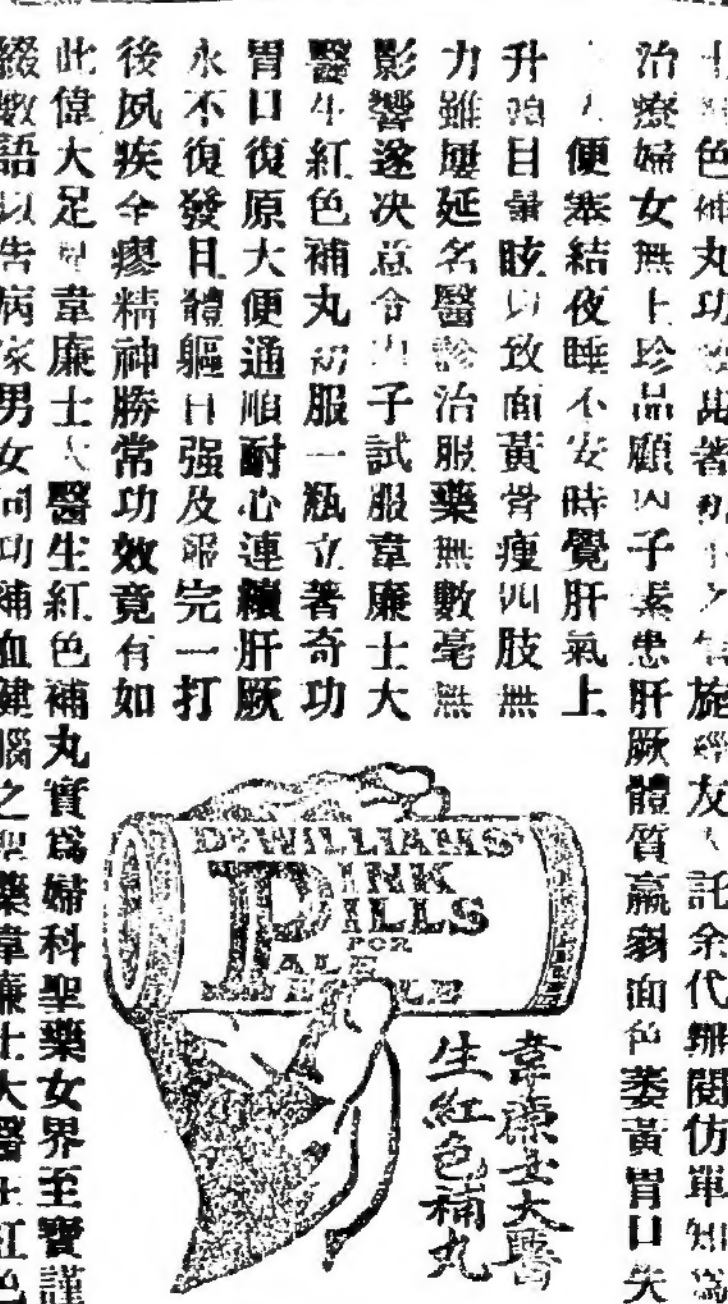 色補丸功效卓著 施 友 託余代辦閱仿單知爲
治療婦女無上珍品顧內子素患肝厥體質羸弱面色萎黃胃口失
便祕結夜睡不安時覺肝氣上
升 目暈眩以致面黃骨瘦四肢無
力雖屢延名醫診治服藥無數毫無
影響遂决意令內子試服韋廉士大
醫生紅色補丸初服一瓶立著奇功
胃口復原大便通順耐心連續肝厥
永不復發且體軀日强及服完一打
後夙疾全瘳精神勝常功效竟有如
此偉大足見韋廉士大醫生紅色補丸實爲婦科聖藥女界至寶謹
綴數語以告病家男女同功補血健腦之聖藥韋廉士大醫生紅色
DR WILLIAMS
PINK
PILLS
FOR
PALE
PEOPLE
韋廉士大醫
生紅色補丸